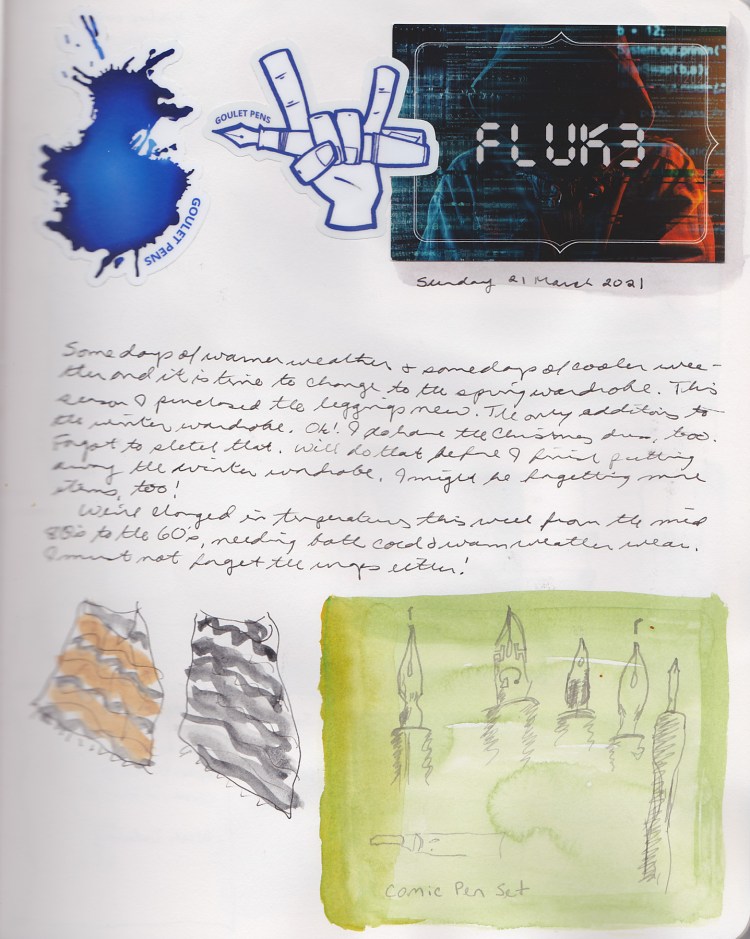 GOULET PENS
GOULET PENS
b = 12;
System.out.println("
swap(b,a);
FLUK3
Sunday 21 March 2021
Some days of warmer weather & some days of cooler wea-
ther and it is time to change to the spring wardrobe. This
season I purchased the leggings new. The only additions to
the winter wardrobe. Oh! I do have the Christmas dress, too.
Forgot to sketch that. Will do that before I finish putting
away the winter wardrobe. I might be forgetting more
items, too!
We've changed in temperatures this week from the mid
to the 60's, needing both cold & warm weather wear.
I must not forget the wraps either!
Comic Pen Set